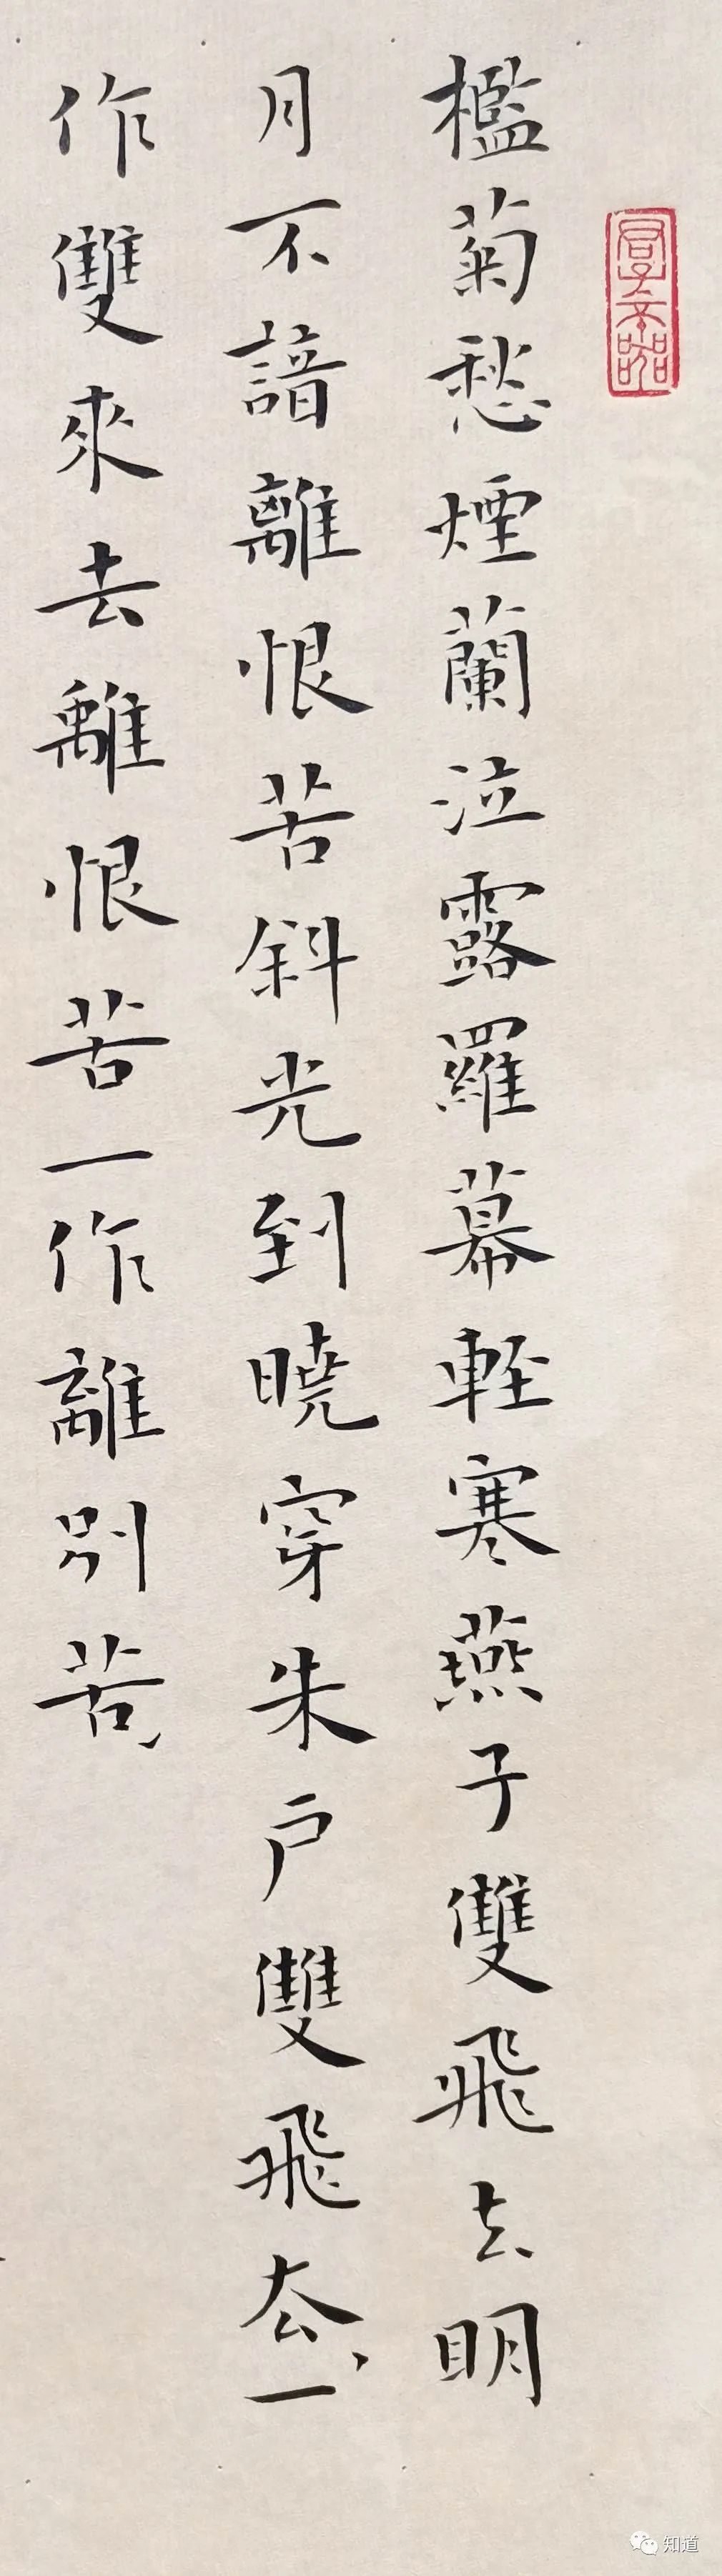 檻菊愁煙蘭泣露羅幕輕寒燕子雙飛去明
月不諳離恨苦斜光到曉穿朱户雙飛厺一
作雙來去離恨苦一作離別苦
知道